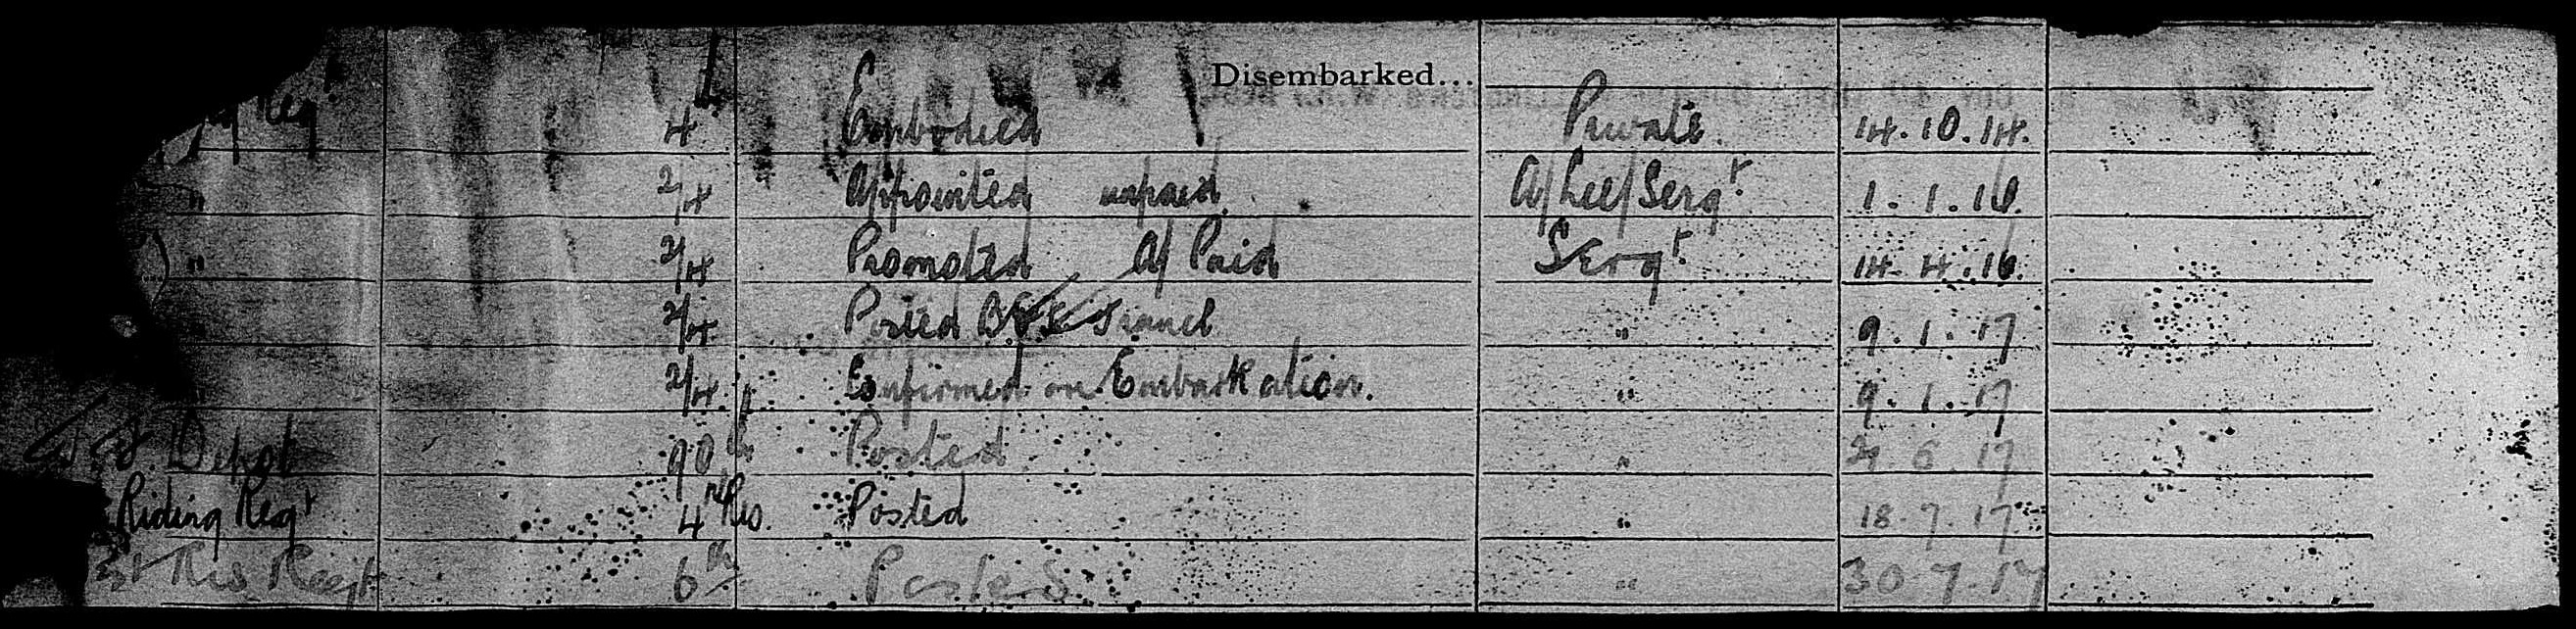 Disembarked...
Regt 4 Embodied Private. 14.10.14.
" 2/4 Appointed unpaid. A/Lce/Sergt. 1.1.16.
" 2/4 Promoted A/ Paid Sergt. 14.4.16.
2/4 Posted B.E.F. France " 9.1.17
2/4. Confirmed on Embarkation. " 9.1.17
Depot 90th Posted " 6.17
Riding Regt 4th Res. Posted " 18.7.17
Regt 6th Posted " 30.7.17